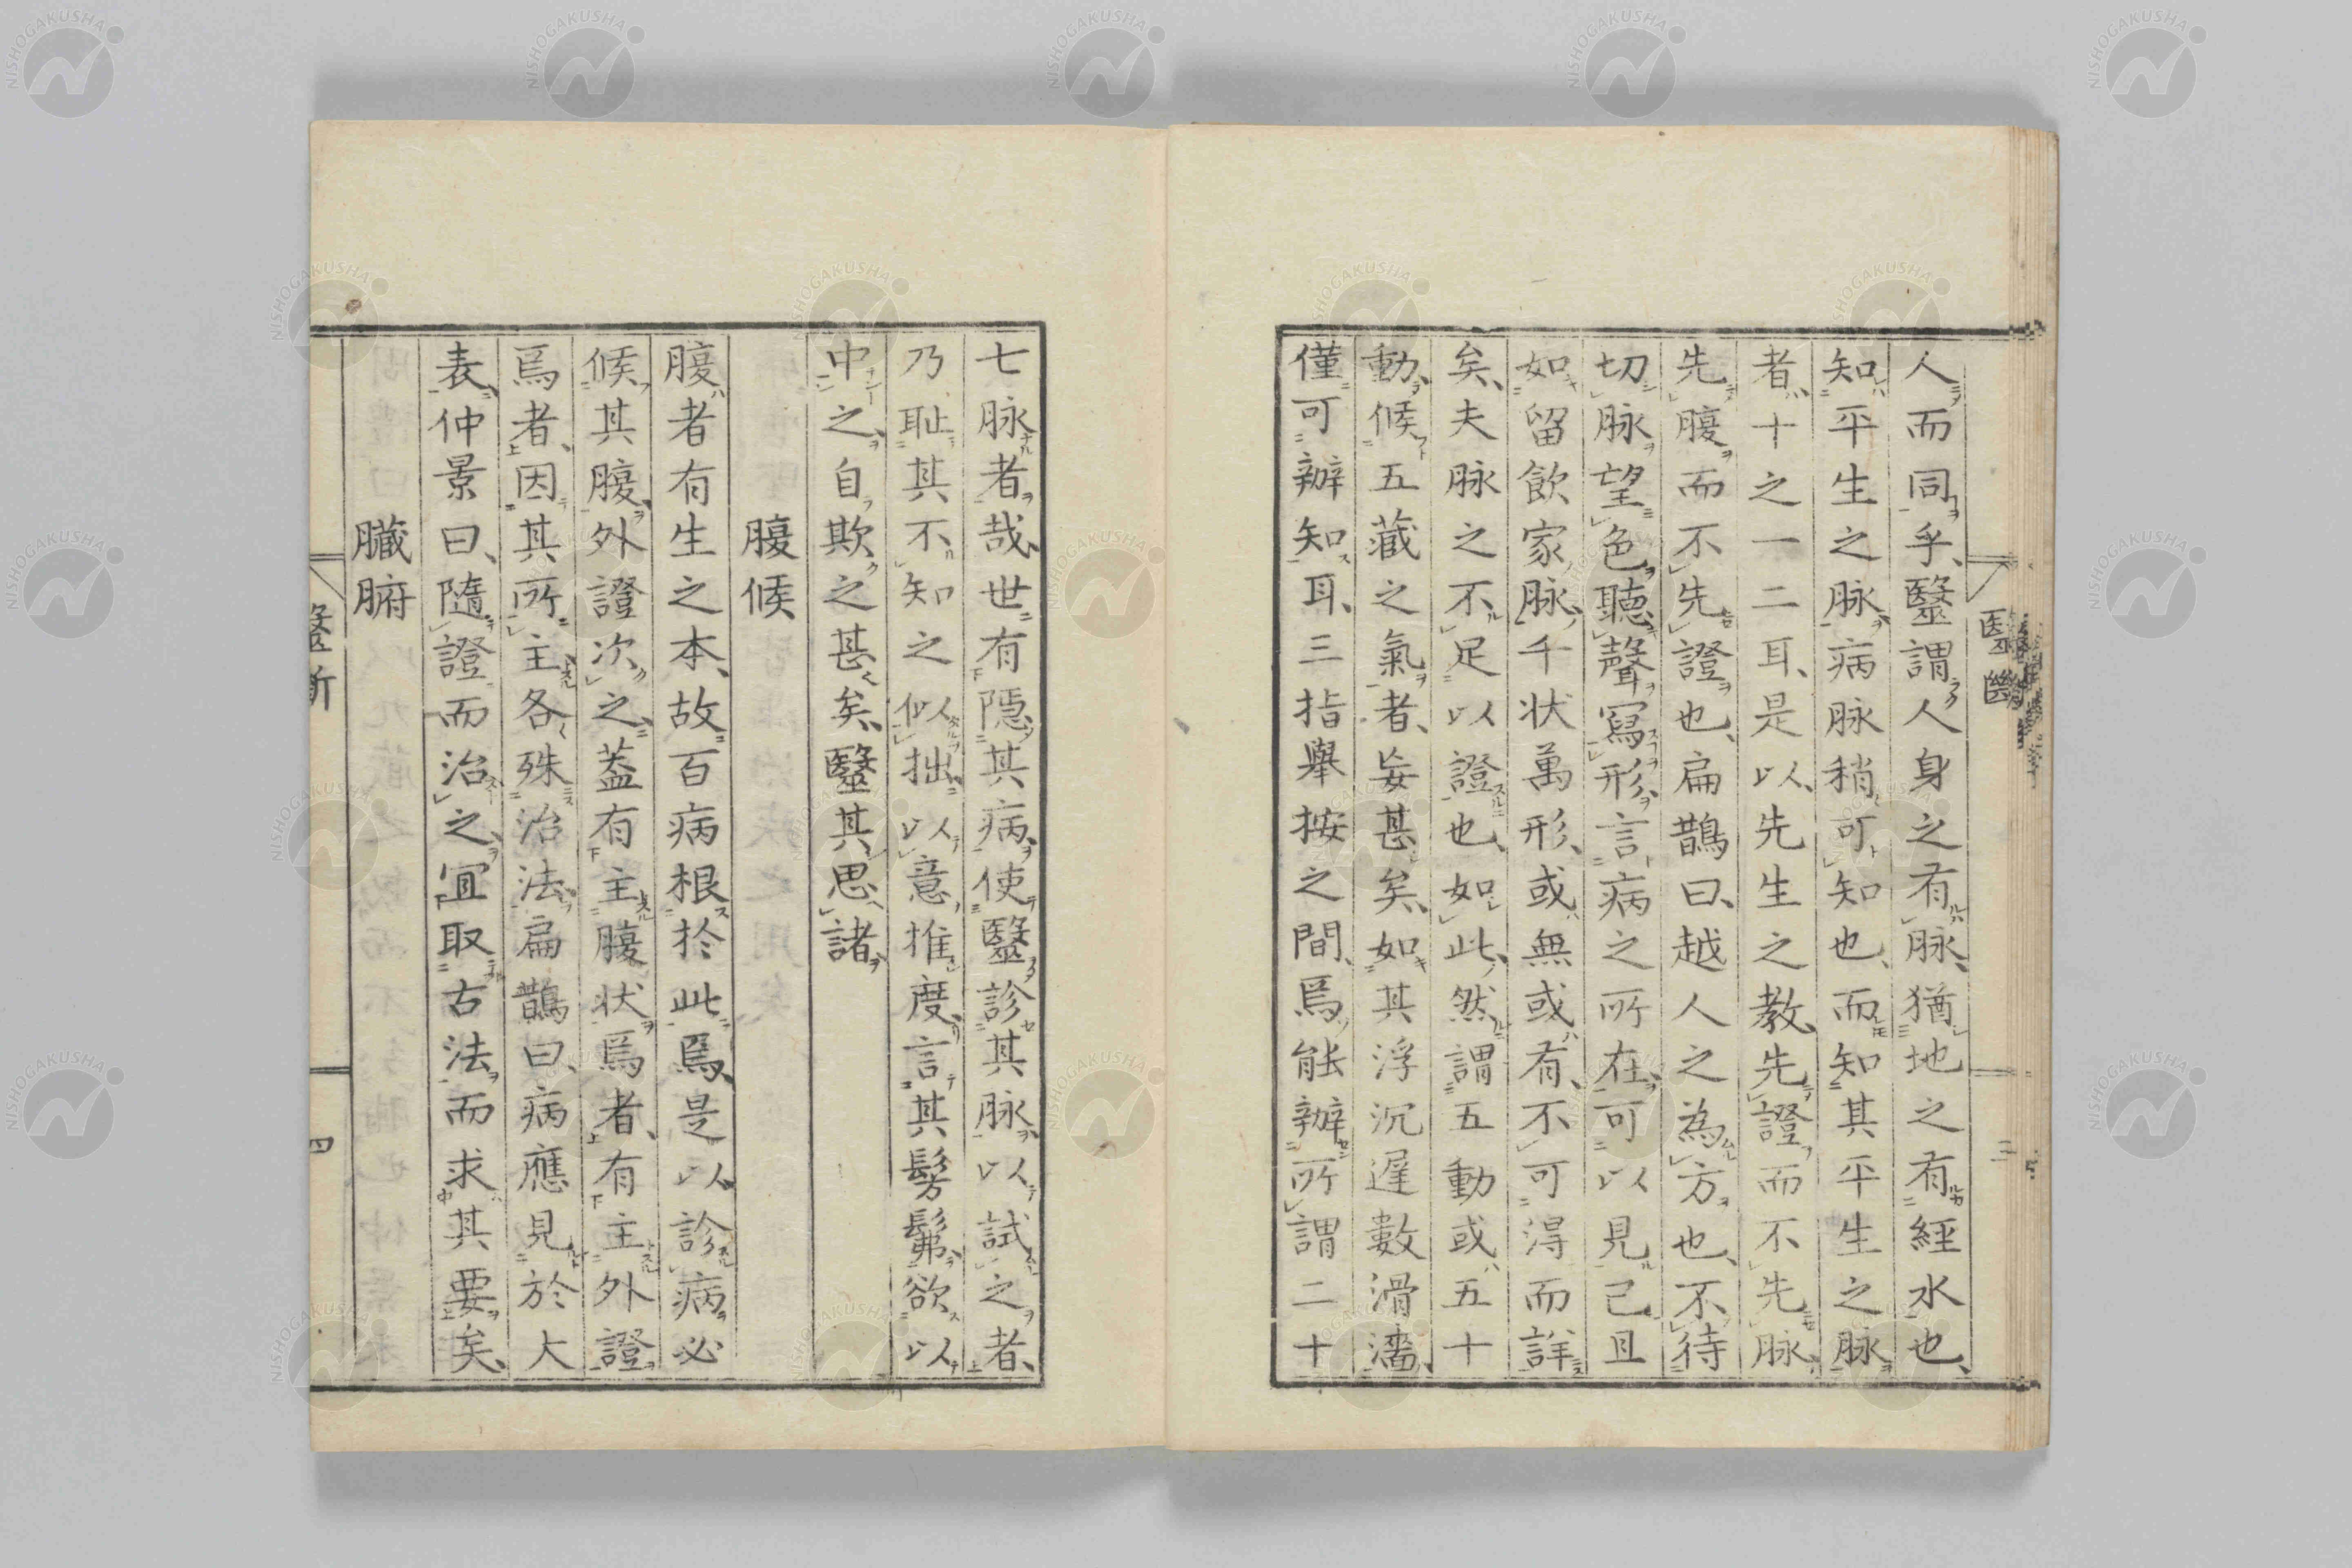 人而同乎、毉謂人身之有脉、猶地之有經水也、
知平生之脉、病脉稍可知也、而知其平生之脉
者、十之一二耳、是以、先生之教、先證而不先脉、
先腹而不先證也、扁鵲曰、越人之為方也、不待
切脉望色、聽聲寫形、言病之所在、可以見已、且
如留飲家脉、千状萬形、或無或有、不可得而詳
矣、夫脉之不足以證也、如此、然謂五動或五十
動、候五藏之氣者、妄甚矣、如其浮沉遲數滑濇、
僅可辨知耳、三指舉按之間、焉能辨所謂二十
七脉者哉、世有隱其病、使毉診其脉、以試之者、
乃耻其不知之似拙、以意推度、言其髣髴、欲以
中之、自欺之甚矣、毉其思諸
腹候
腹者有生之本、故百病根於此焉、是以診病必
候其腹、外證次之、葢有主腹状焉者、有主外證
焉者、因其所主、各殊治法、扁鵲曰、病應見於大
表、仲景曰、隨證而治之、冝取古法而求其要矣、
臟腑
毉斷
四